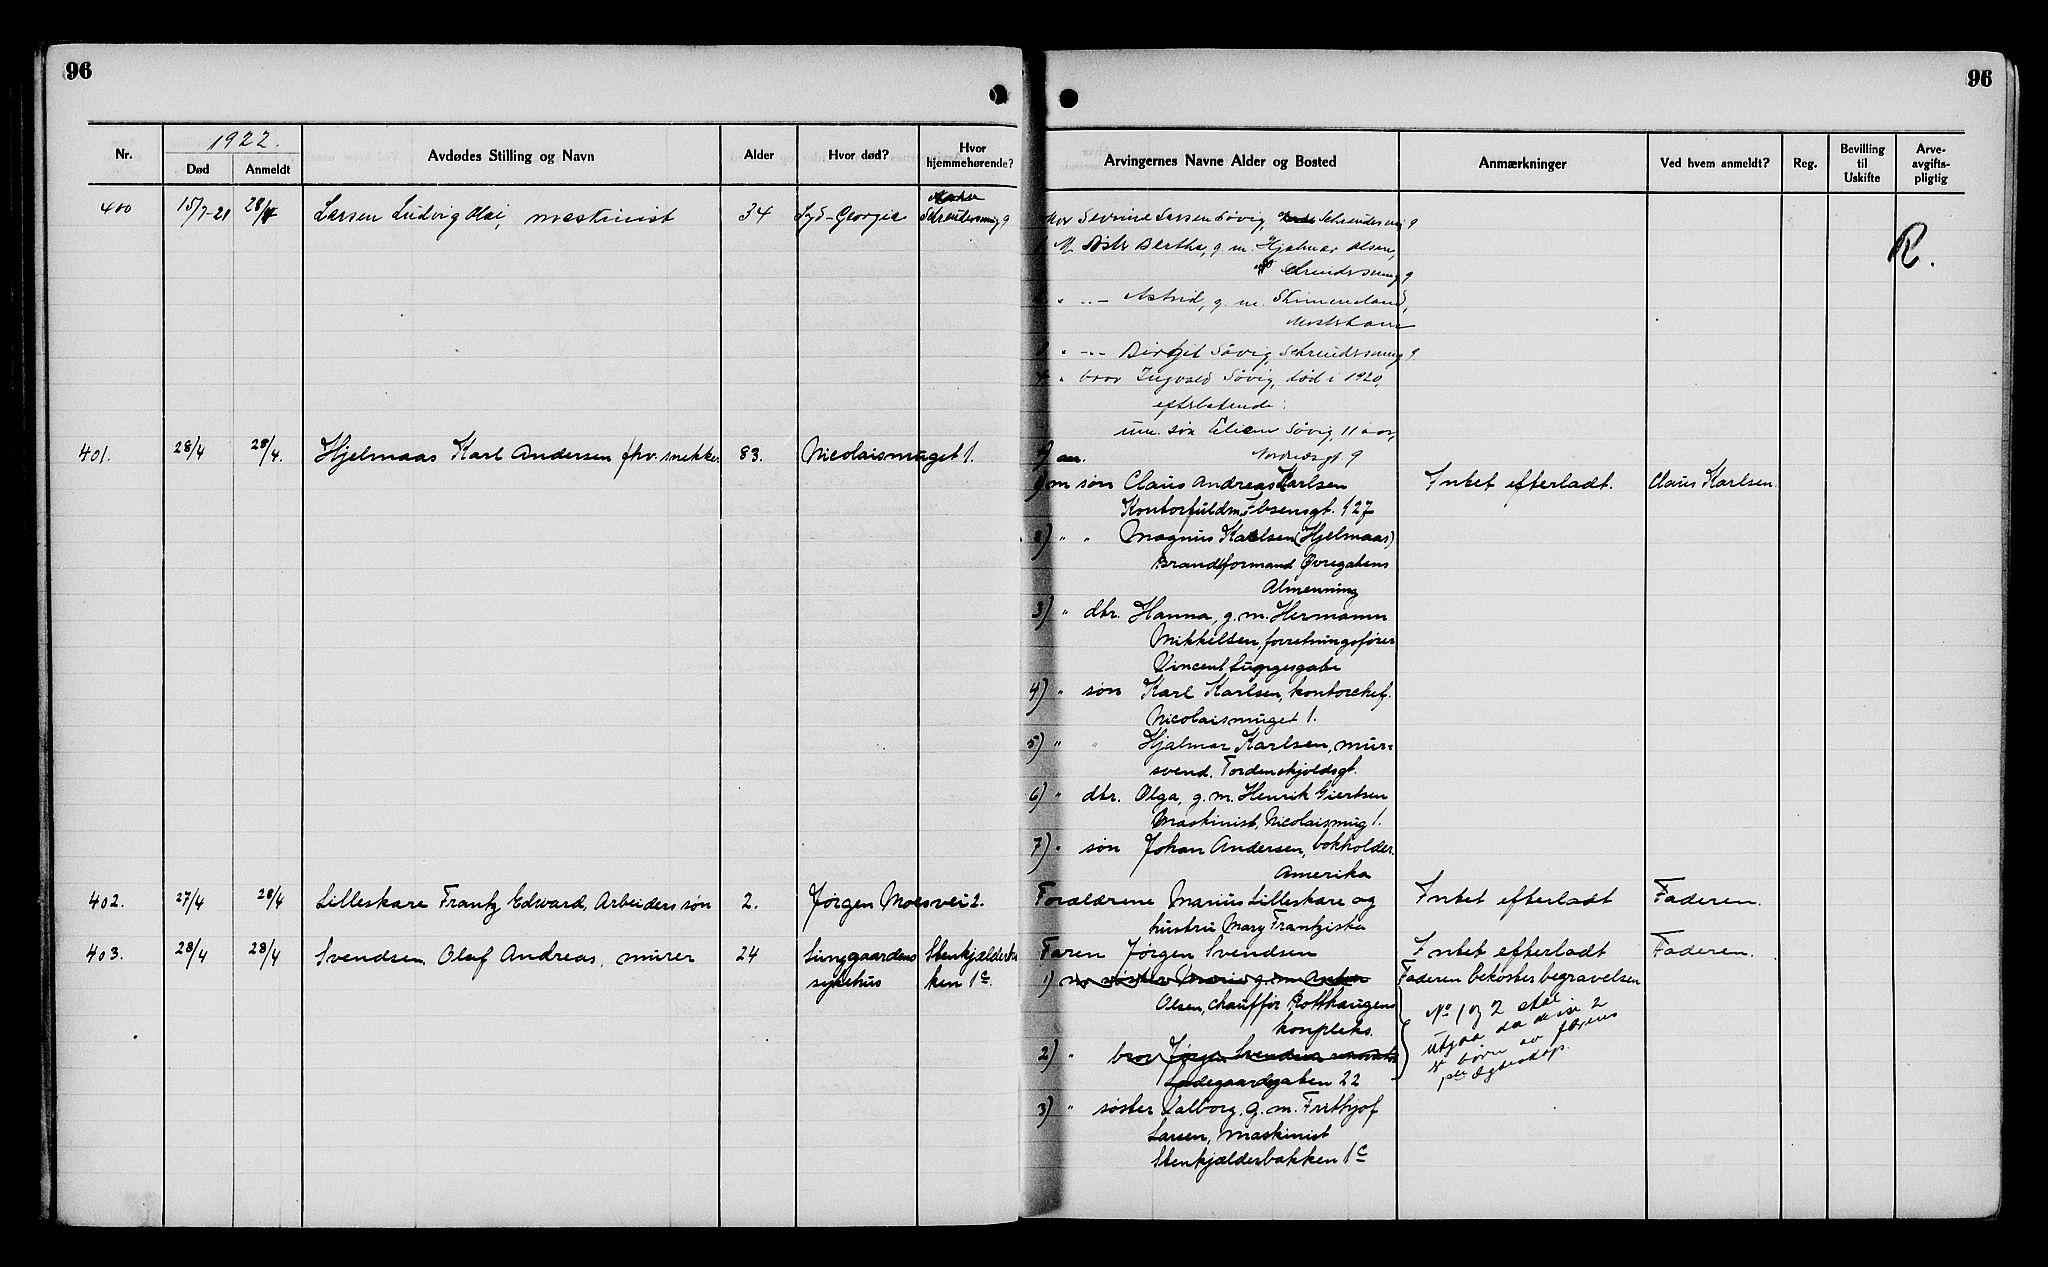 96
96
1922.
Nr.
Død
Anmeldt
Avdødes Stilling og Navn
Alder
Hvor død?
Hvor hjemmehørende?
Arvingernes Navne Alder og Bosted
Anmærkninger
Ved hvem anmeldt?
Reg.
Bevilling til Uskifte
Arveavgiftspligtig
400 15/7-21 28/4 Larsen Ludvig Olai, maskinist 34 Syd-Georgia Schreudersmug 9
Mor Sevrine Larsen Søvig, Schreudersmug 9
R.
M. Søstr Bertha, g. m. Hjalmar Olsen,
Schreudersmug 9
" - Astrid, g. m.
" - Birgit Søvig, Schreudersmug 9
4 " bror Ingvald Søvig, død i 1920,
efterlatende:
um. søn Søvig, 11 aar,
401. 28/4 28/4. Hjelmaas Karl Andersen fhv. snekker 83. Nicolaismuget 1.
1) m søn Claus Andreas Karlsen Intet efterladt. Claus Karlsen.
Kontorfuldm. Ibsensgt. 127
2) " " Magnus Karlsen (Hjelmaas)
Brandformand Øvregatens
Almenning
3) " dtr. Hanna, g. m. Hermann
Mikkelsen, forretningsfører
Vincent Lungesgate
4) " søn Karl Karlsen, kontorchef.
Nicolaismuget 1.
5) " " Hjalmar Karlsen, mur-
svend. Tordenskjoldsgt.
6) " dtr. Olga, g. m. Henrik Giertsen
Maskinist, Nicolaismug 1.
7) " søn Johan Andersen, bokholder.
Amerika
402. 27/4 28/4 Lilleskare Frantz Edward, Arbeiders søn 2. Jørgen Moesvei 2. Forældrene Marius Lilleskare og Intet efterladt Faderen.
hustru Mary Frantziska
403. 28/4 28/4 Svendsen Olaf Andreas, murer 24 Lungaardens Stenkjælderbak- Faren Jørgen Svendsen Intet efterladt Faderen.
sykehus ken 1c.
1) m søster Marie g. m. Anton Faderen bekoster begravelsen
Olsen, chauffør Rotthaugens
kompleks.
No 1 og 2 skal
utgaa da disse 2
er børn av farens
2) " bror Jørgen Svendsen
Ladegaardsgaten 22
3) " søster Valborg, g. m. Frithjof
Larsen, maskinist
Stenkjælderbakken 1c